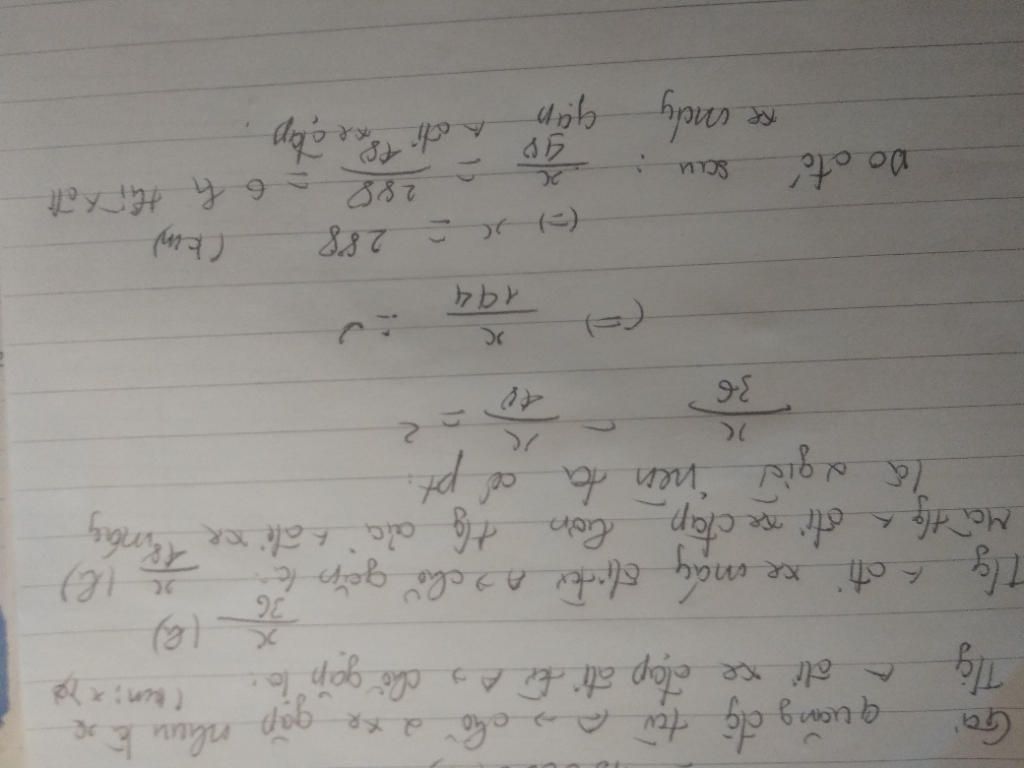 Gọi quãng đg từ A → chỗ 2 xe gặp nhau là x
(km; x >0)
Tg đi xe đạp đi từ A → chỗ gặp là:
x/36 (h)
Tg đi xe máy đi từ A → chỗ gặp là: x/18 (h)
Mà tg đi xe đạp hơn tg của đi xe máy
là 2 giờ nên ta có pt:
x/36 - x/18 = 2
(=) x/144 = 2
(=) x = 288 (km)
Do đó sau : x/48 = 288/48 = 6 h thì đi
xe máy gặp đi xe đạp.